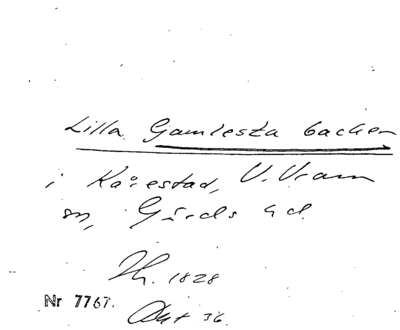 Lilla Gamlesta backen
i Kårestad, V. Vram
sn, Gärds hd.
1828
Nr 7767.
36.